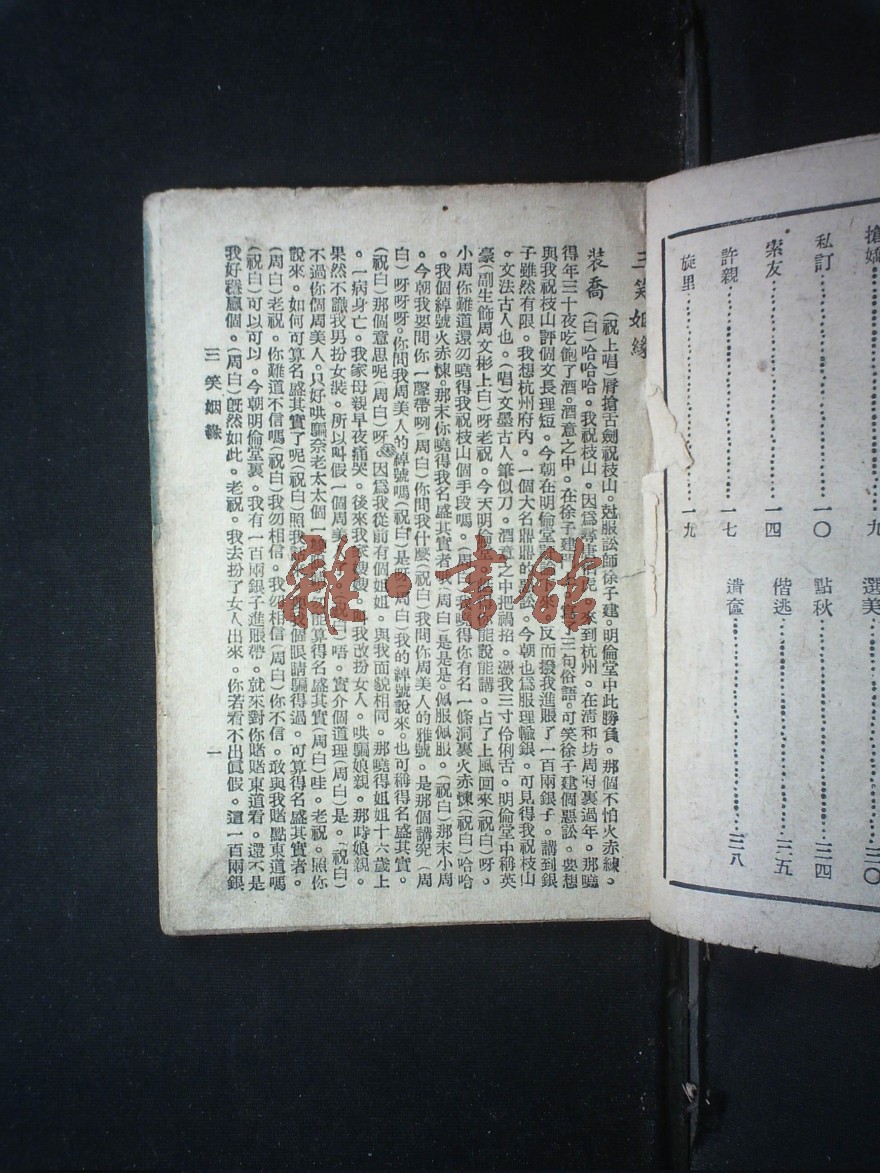 搶嬌……………九
私訂……………一〇
索友……………一四
許親……………一七
旋里……………一九
選美……………三〇
點秋……………三四
偕逃……………三五
遣奩……………三八
三笑姻緣
裝喬
(祝上唱)脣搶舌劍祝枝山。尅服訟師徐子建。明倫堂中此勝負。那個不怕火赤練。
(白)哈哈哈。我祝枝山。因爲尋唐伯虎。來到杭州。在淸和坊周府裏過年。那曉
得年三十夜吃飽了酒。酒意之中。在徐子建門上。寫了三句俗語。可笑徐子建個惡訟。要想
與我祝枝山評個文長理短。今朝在明倫堂 來。反而撥我進賬了一百兩銀子。講到銀
子雖然有限。我想杭州府内。一個大名鼎鼎的惡訟。今朝也爲服理輸銀。可見得我祝枝山
。文法古人也。(唱)文墨古人筆似刀。酒意之中把禍招。憑我三寸伶俐舌。明倫堂中稱英
豪。(副生飾周文彬上白)呀老祝。今天明倫堂 能說能講。占了上風回來(祝白)呀。
小周你難道還勿曉得我祝枝山個手段嗎。(周白)我曉得你有名一條洞裏火赤煉(祝白)哈哈
。我個綽號火赤煉。那末你曉得我名盛其實者。(周白)是是是。佩服佩服。(祝白)那末小周
。今朝我要問你一聲帶咧(周白)你問我什麼(祝白)我問你周美人的雅號。是那個講究(周
白)呀呀呀。你問我周美人的綽號嗎(祝白)是呀(周白)我的綽號說來。也可稱得名盛其實。
(祝白)那個意思呢(周白)呀。因爲我從前有個姐姐。與我面貌相同。那曉得姐姐十六歲上
。一病身亡。我家母親早夜痛哭。後來我家嫂嫂。叫我改扮女人。哄騙娘親。那時娘親。
果然不識我男扮女裝。所以叫假一個周美人 (祝白)唔。實介個道理(周白)是。(祝白)
不過你個周美人。只好哄騙奈老太太個 能算得名盛其實(周白)哇。老祝。照你
說來。如何可算名盛其實了呢(祝白)照我 個眼睛騙得過。可算得名盛其實者。
(周白)老祝。你難道不信嗎(祝白)我勿相信。我勿相信(周白)你不信。敢與我賭點東道嗎
(祝白)可以可以。今朝明倫堂裏。我有一百兩銀子進賬帶。就來對你賭賭東道看。還不是
我好穩贏個。(周白)旣然如此。老祝。我去扮了女人出來。你若看不出眞假。這一百兩銀
三笑姻緣
一
雜·書館